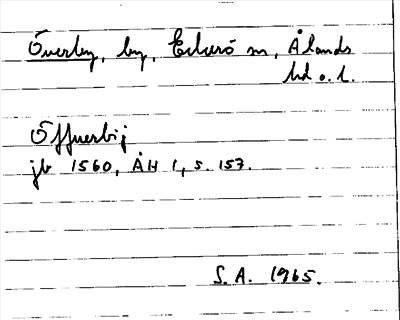 Överby, by, Eckerö sn, Ålands
hd o. l.
Öffuerbij
jb 1560, ÅH 1, s. 157.
S.A. 1965.